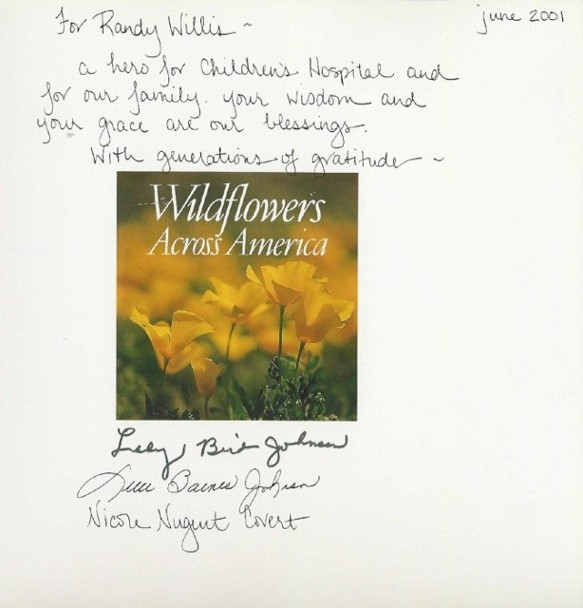 For Randy Willis ~
june 2001
a hero for Children's Hospital and
for our family. your wisdom and
your grace are our blessings.
With generations of gratitude ~
Wildflowers
Across America
Lady Bird Johnson
Luci Baines Johnson
Nicole Nugent Covert